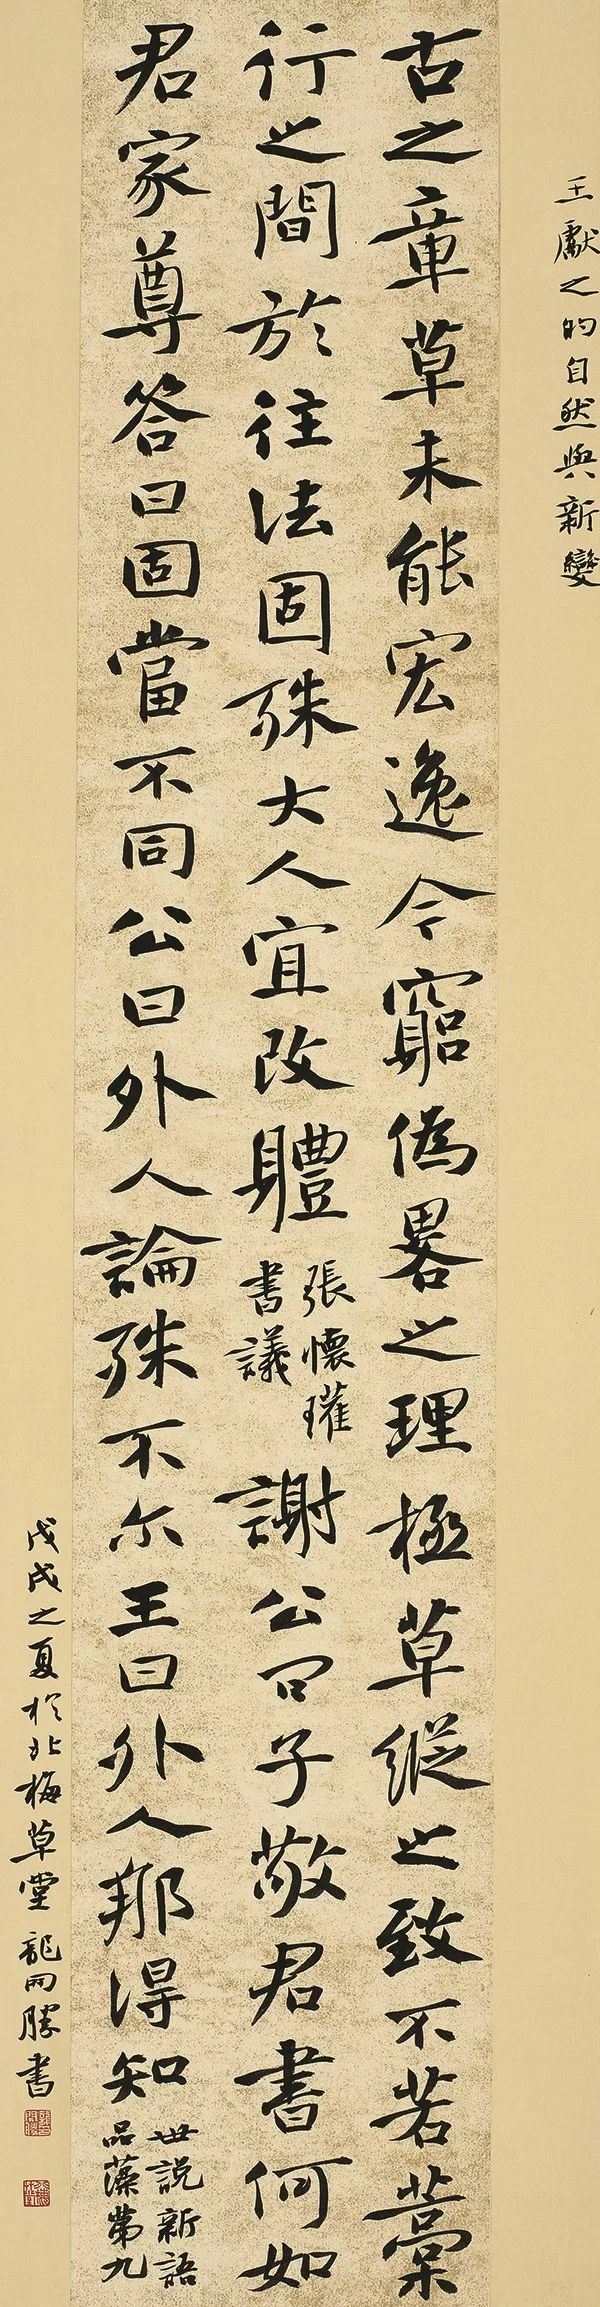 王獻之的自然與新變
古之章草未能宏逸今窮偽畧之理極草縱之致不若藁
行之間於往法固殊大人宜改體
張懷瓘
書議
謝公問子敬君書何如
君家尊答曰固當不同公曰外人論殊不尓王曰外人那得知
世說新語
品藻第九
戊戌之夏於北梅草堂龍開勝書